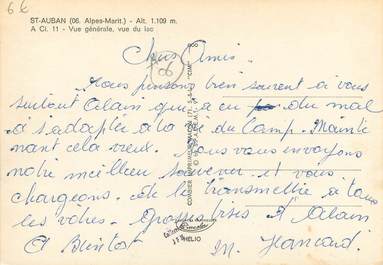 6€
ST-AUBAN (06. Alpes-Marit.) - Alt. 1.109 m.
A Ci. 11 - Vue générale, vue du lac
Chers Amis
06
Nous pensons bien souvent à vous
surtout Alain qui a eu du mal
à s'adapter à la vie du Camp. Mainte
nant cela vieux. Nous vous envoyons
notre meilleur souvenir et vous
chargeons de le transmettre à tous
les vôtres. Grosses bises d'Alain
A Bientot
M.